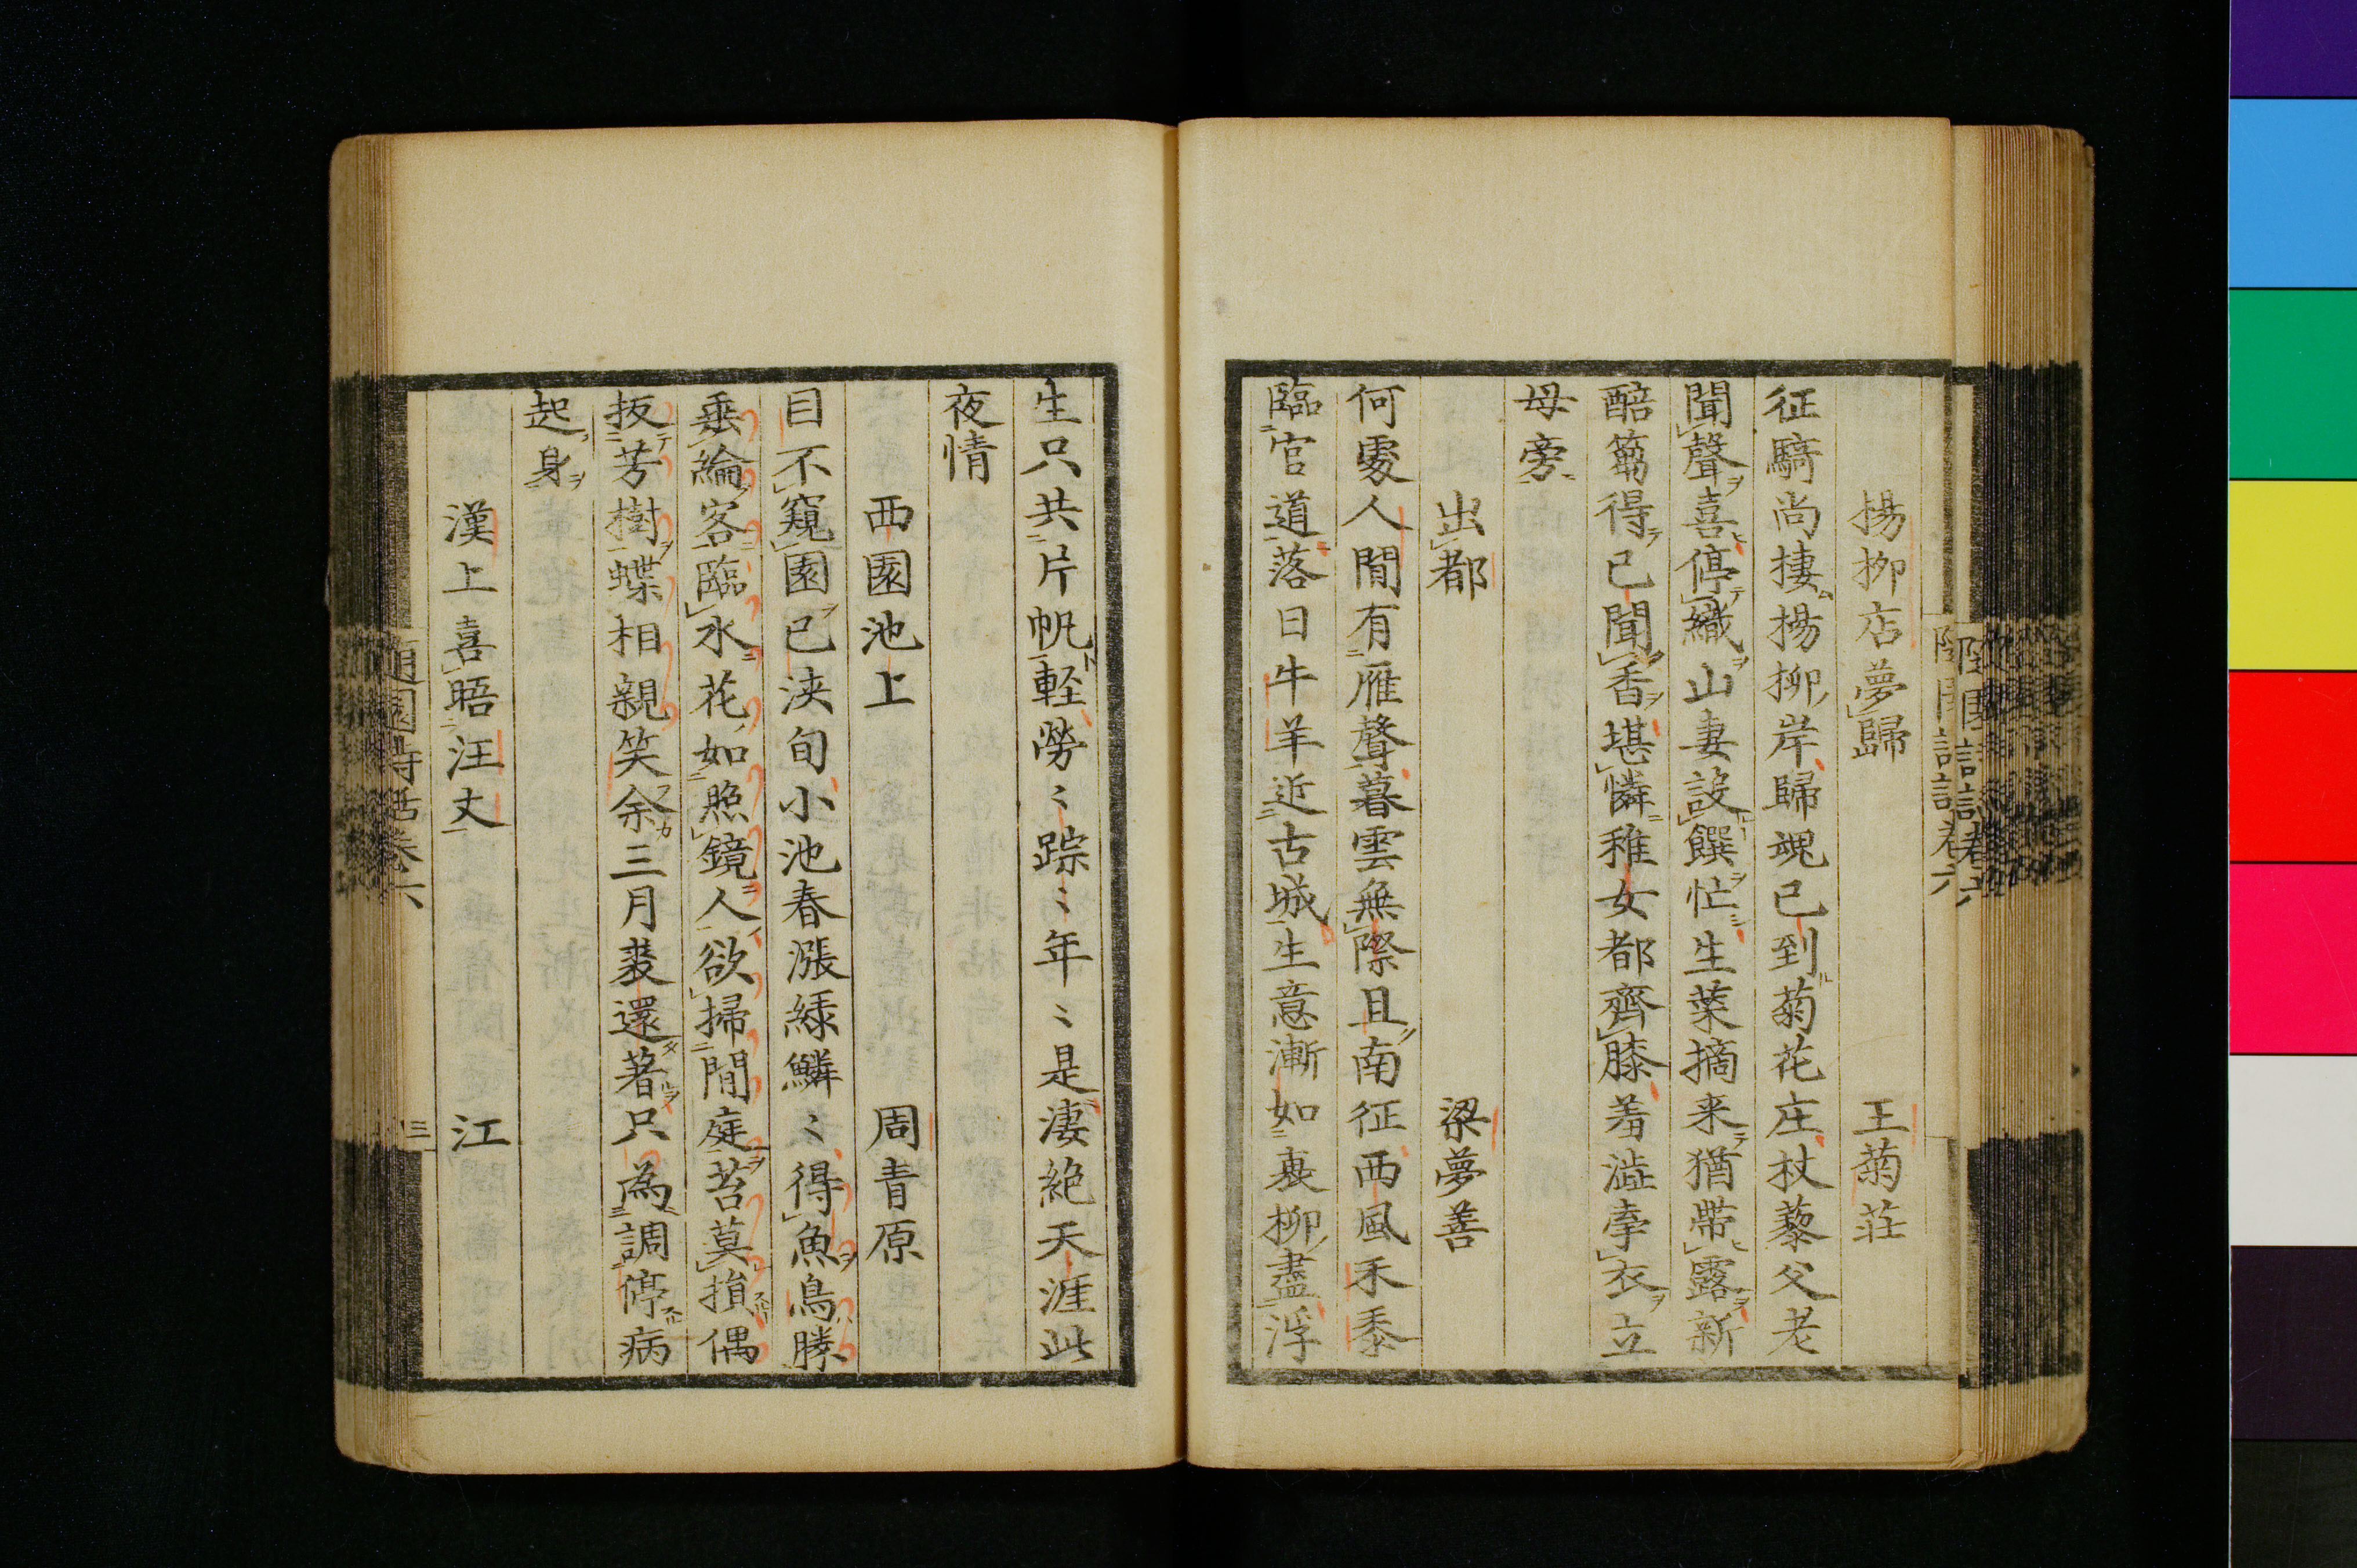 楊栁店夢歸　王菊荘
征騎尚捿楊栁岸歸魂已到菊花庄杖藜父老
聞聲喜停織山妻設饌忙生菜摘来猶帶露新
醅篘得已聞香堪憐稚女都齊膝羞澁牽衣立
母旁
出都　梁夢善
何處人間有雁聲暮雲無際且南征西風禾黍
臨官道落日牛羊近古城生意漸如衰栁盡浮
生只共片帆輕勞〻踪〻年〻是淒絶天涯此
夜情
西園池上　周青原
目不窺園已浹旬小池春漲緑鱗〻得魚鳥勝
垂綸客臨水花如照鏡人欲掃閒庭苔莫損偶
扳芳樹蝶相親笑余三月裘還著只為調停病
起身
漢上喜晤汪丈　江
隨園詩話卷六
三